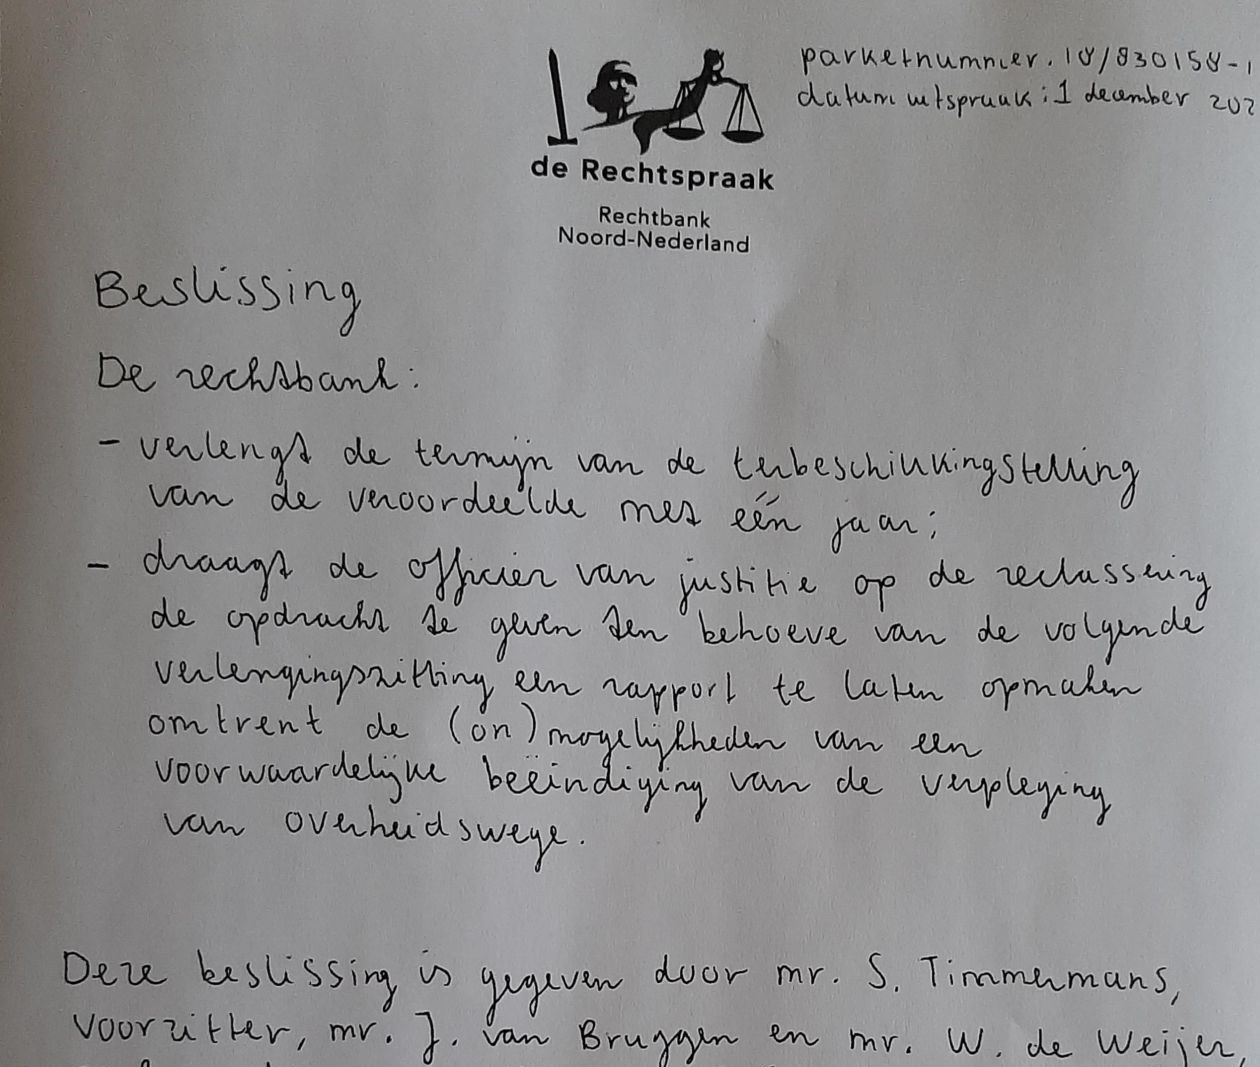 parketnummer. 18/830158-1
datum uitspraak: 1 december 202
de Rechtspraak
Rechtbank
Noord-Nederland
Beslissing
De rechtbank:
- verlengt de termijn van de terbeschikkingstelling
van de veroordeelde met één jaar;
- draagt de officier van justitie op de reclassering
de opdracht te geven ten behoeve van de volgende
verlengingszitting een rapport te laten opmaken
omtrent de (on)mogelijkheden van een
voorwaardelijke beëindiging van de verpleging
van overheidswege.
Deze beslissing is gegeven door mr. S. Timmermans,
voorzitter, mr. J. van Bruggen en mr. W. de Weijer,